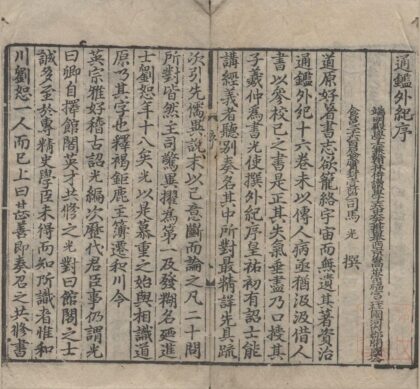 通鑑外紀序
司馬光 撰
道原好著書志欲籠絡宇宙而無遺其著資治
通鑑外紀十六卷未以傳人病亟汲汲借人
書以參校已之書是正其失氣垂盡乃口授其
子羲仲為書光使撰外紀序皇祐初有詔士能
講經義者聽別奏名其中所對最精詳先具疏
次引先儒異說末以己意斷而論之凡二十問
所對皆然主司驚異擢為第一及發糊名廼進
士劉恕年十八矣光以是慕重之始與相識道
原乃其字也釋褐鉅鹿主簿遷和川令
英宗雅好稽古詔光編次歷代君臣事仍謂光
曰卿自擇館閣英才共修之光對曰館閣之士
誠多至於專精史學臣未得而知所識者惟和
川劉恕一人而已上曰甚善即奏召之共修書